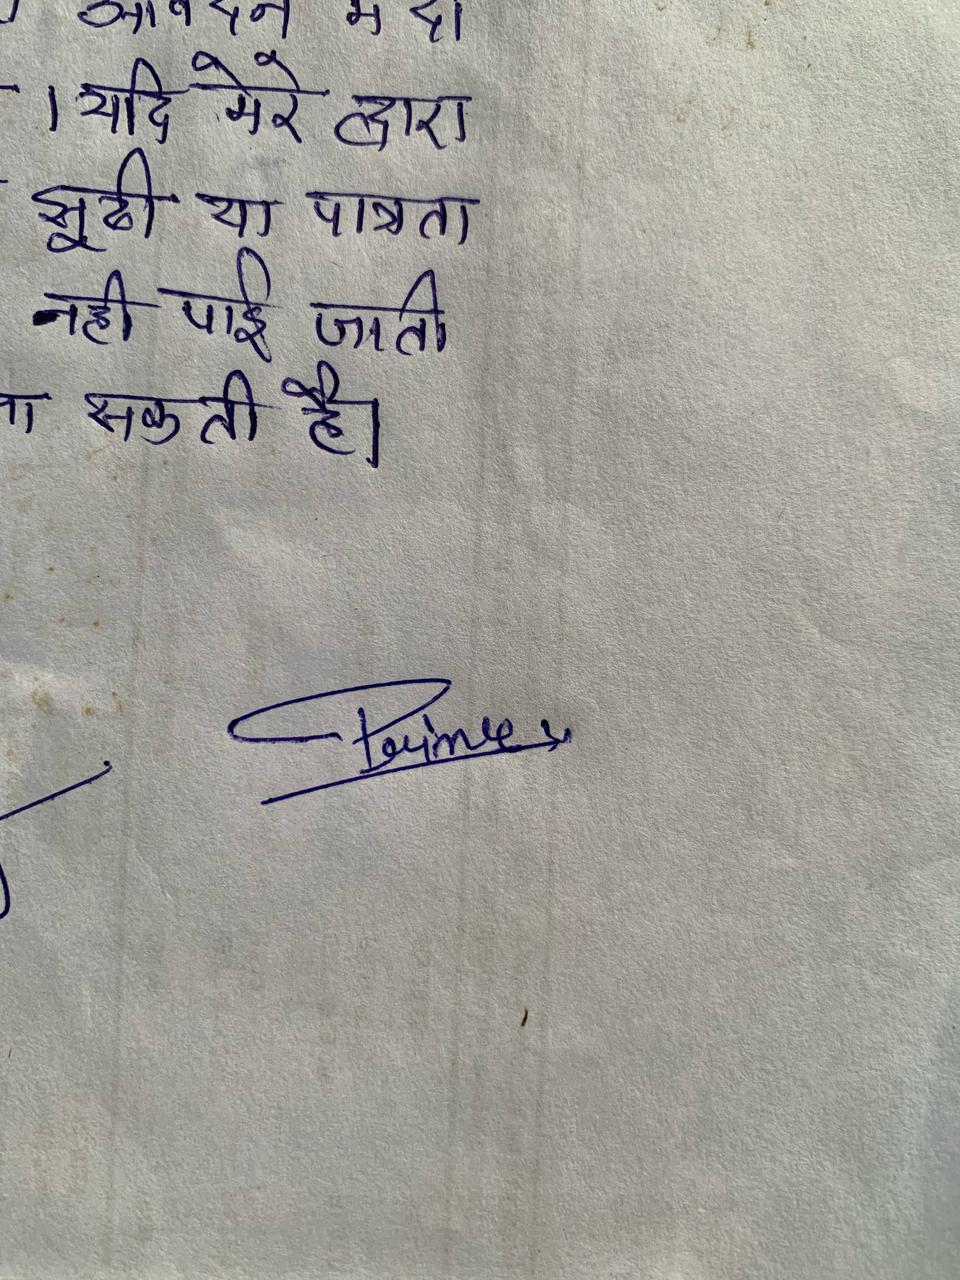 आवेदन में दी
। यदि मेरे द्वारा
झूठी या पात्रता
नही पाई जाती
सकती है।
Prince